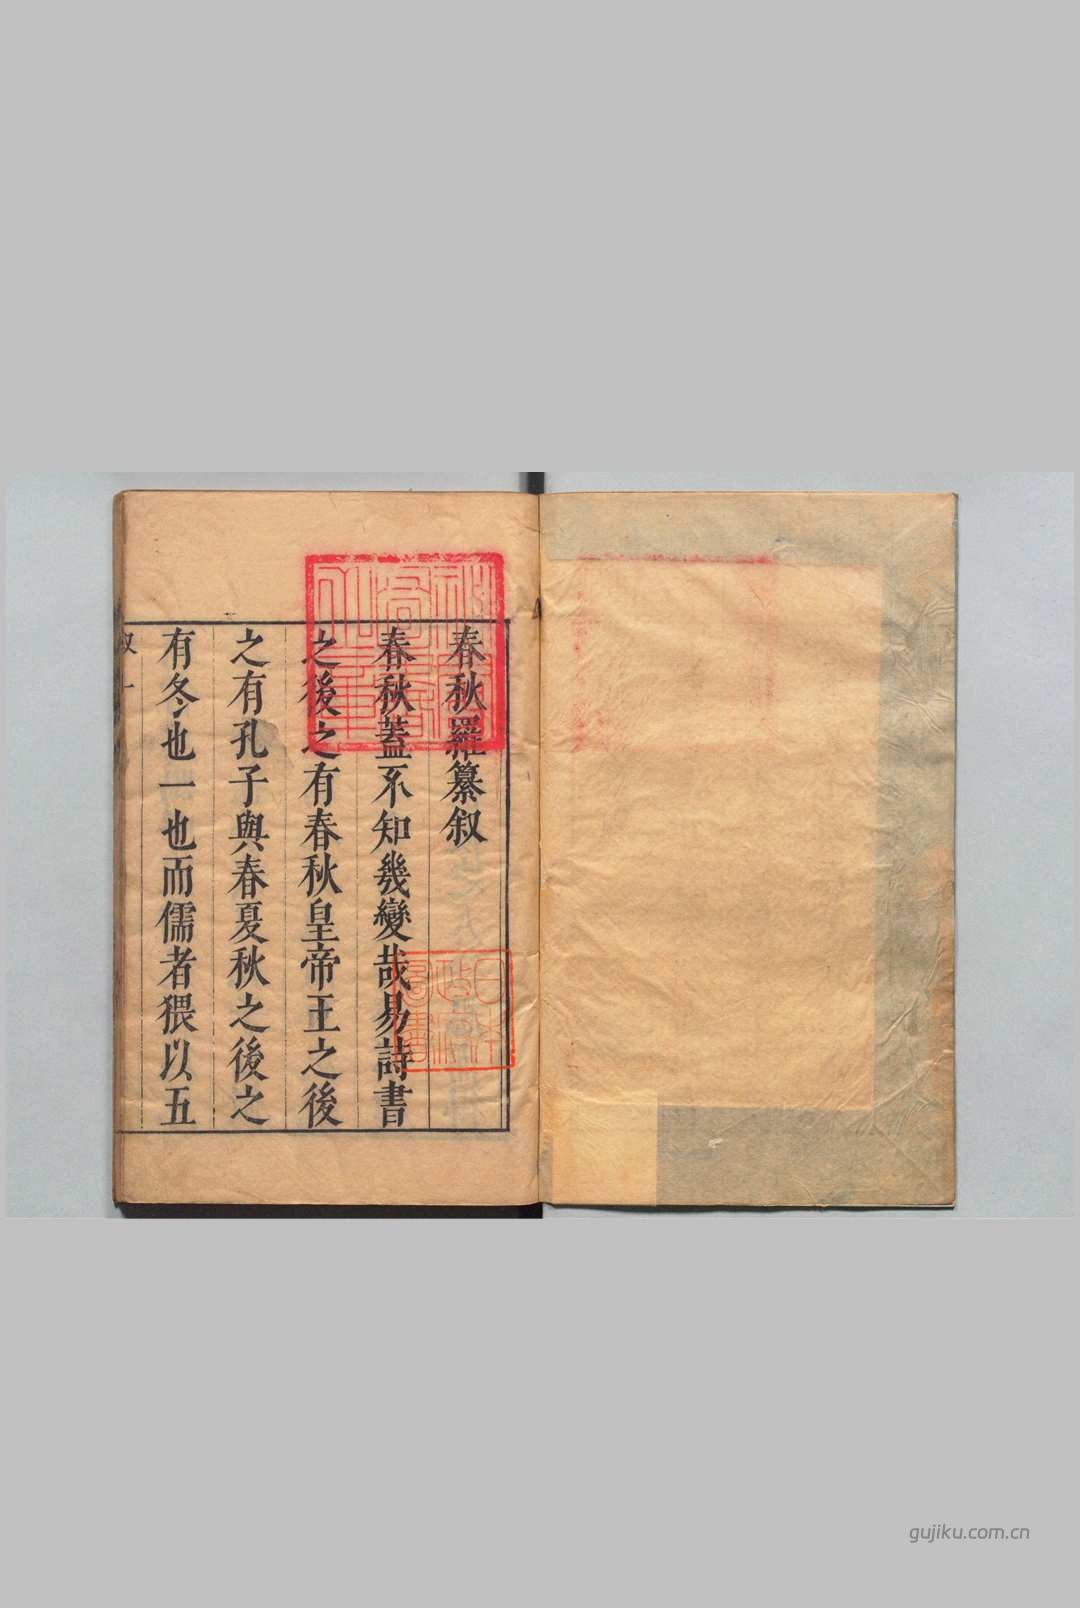 春秋羅纂叙
春秋蓋不知幾變哉易詩書
之後之有春秋皇帝王之後
之有孔子與春夏秋之後之
有冬也一也而儒者猥以五
叙 一
日本
政府
圖書
gujiku.com.cn